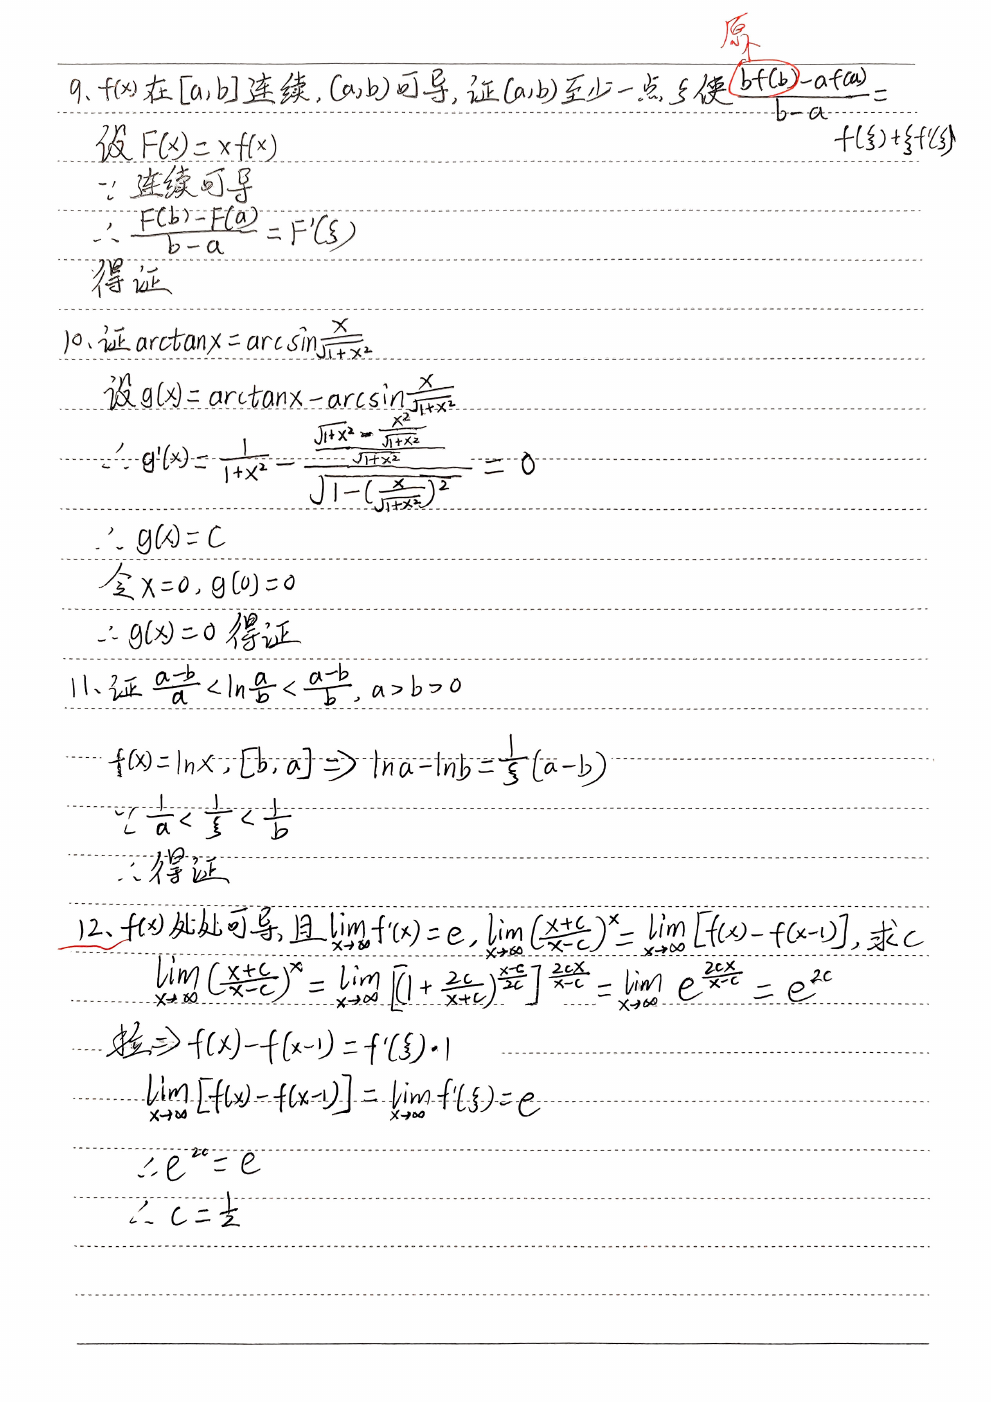 原
9、f(x)在[a,b]连续,(a,b)可导,证(a,b)至少一点ξ使 (bf(b)-af(a))/(b-a) = f(ξ)+ξf'(ξ)
设F(x)=xf(x)
∵连续可导
∴ (F(b)-F(a))/(b-a) = F'(ξ)
得证
10、证arctanx=arcsin x/√(1+x²)
设g(x)=arctanx-arcsin x/√(1+x²)
∴g'(x)= 1/(1+x²) - ((√(1+x²) - x²/√(1+x²))/√(1+x²))/√(1-(x/√(1+x²))²) = 0
∴g(x)=C
令x=0,g(0)=0
∴g(x)=0 得证
11、证 (a-b)/a < ln a/b < (a-b)/b, a>b>0
f(x)=lnx,[b,a]⇒lna-lnb= 1/ξ (a-b)
∵ 1/a < 1/ξ < 1/b
∴得证
12、f(x)处处可导,且lim x→∞ f'(x)=e, lim x→∞ ((x+c)/(x-c))^x = lim x→∞ [f(x)-f(x-1)],求c
lim x→∞ ((x+c)/(x-c))^x = lim x→∞ [(1+ 2c/(x+c))^((x-c)/2c)]^(2cx/(x-c)) = lim x→∞ e^(2cx/(x-c)) = e^2c
⇒f(x)-f(x-1)=f'(ξ)·1
lim x→∞ [f(x)-f(x-1)] = lim x→∞ f'(ξ)=e
∴e^2c=e
∴c=1/2